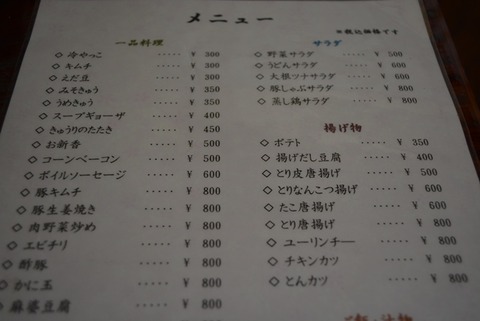 メニュー
※税込価格です
一品料理
◇ 冷やっこ ····· ¥ 300
◇ キムチ ····· ¥ 300
◇ えだ豆 ····· ¥ 300
◇ みそきゅう ····· ¥ 350
◇ うめきゅう ····· ¥ 350
◇ スープギョーザ ····· ¥ 400
◇ きゅうりのたたき ····· ¥ 450
◇ お新香 ····· ¥ 500
◇ コーンベーコン ····· ¥ 500
◇ ボイルソーセージ ····· ¥ 600
◇ 豚キムチ ····· ¥ 800
◇ 豚生姜焼き ····· ¥ 800
◇ 肉野菜炒め ····· ¥ 800
◇ エビチリ ····· ¥ 800
◇ 酢豚 ····· ¥ 800
◇ かに玉 ····· ¥ 800
◇ 麻婆豆腐 ····· ¥ 800
サラダ
◇ 野菜サラダ ····· ¥ 500
◇ うどんサラダ ····· ¥ 600
◇ 大根ツナサラダ ····· ¥ 600
◇ 豚しゃぶサラダ ····· ¥ 800
◇ 蒸し鶏サラダ ····· ¥ 800
揚げ物
◇ ポテト ····· ¥ 350
◇ 揚げだし豆腐 ····· ¥ 400
◇ とり皮唐揚げ ····· ¥ 500
◇ とりなんこつ揚げ ····· ¥ 600
◇ たこ唐揚げ ····· ¥ 600
◇ とり唐揚げ ····· ¥ 800
◇ ユーリンチー ····· ¥ 800
◇ チキンカツ ····· ¥ 800
◇ とんカツ ····· ¥ 800